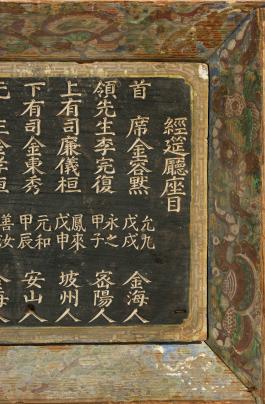 經筵廳座目
首席金容默 允九 戊戌 金海人
領先生李完復 永之 甲子 密陽人
上有司廉儀桓 鳳來 戊申 坡州人
下有司金東秀 元和 甲辰 安山人